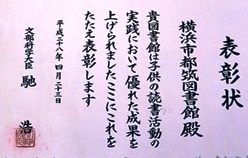 表彰状
横浜市都筑図書館 殿
貴図書館は子供の読書活動の
実践において優れた成果を
上げられましたここにこれを
たたえ表彰します
平成二十八年 四月二十三日
文部科学大臣 馳 浩